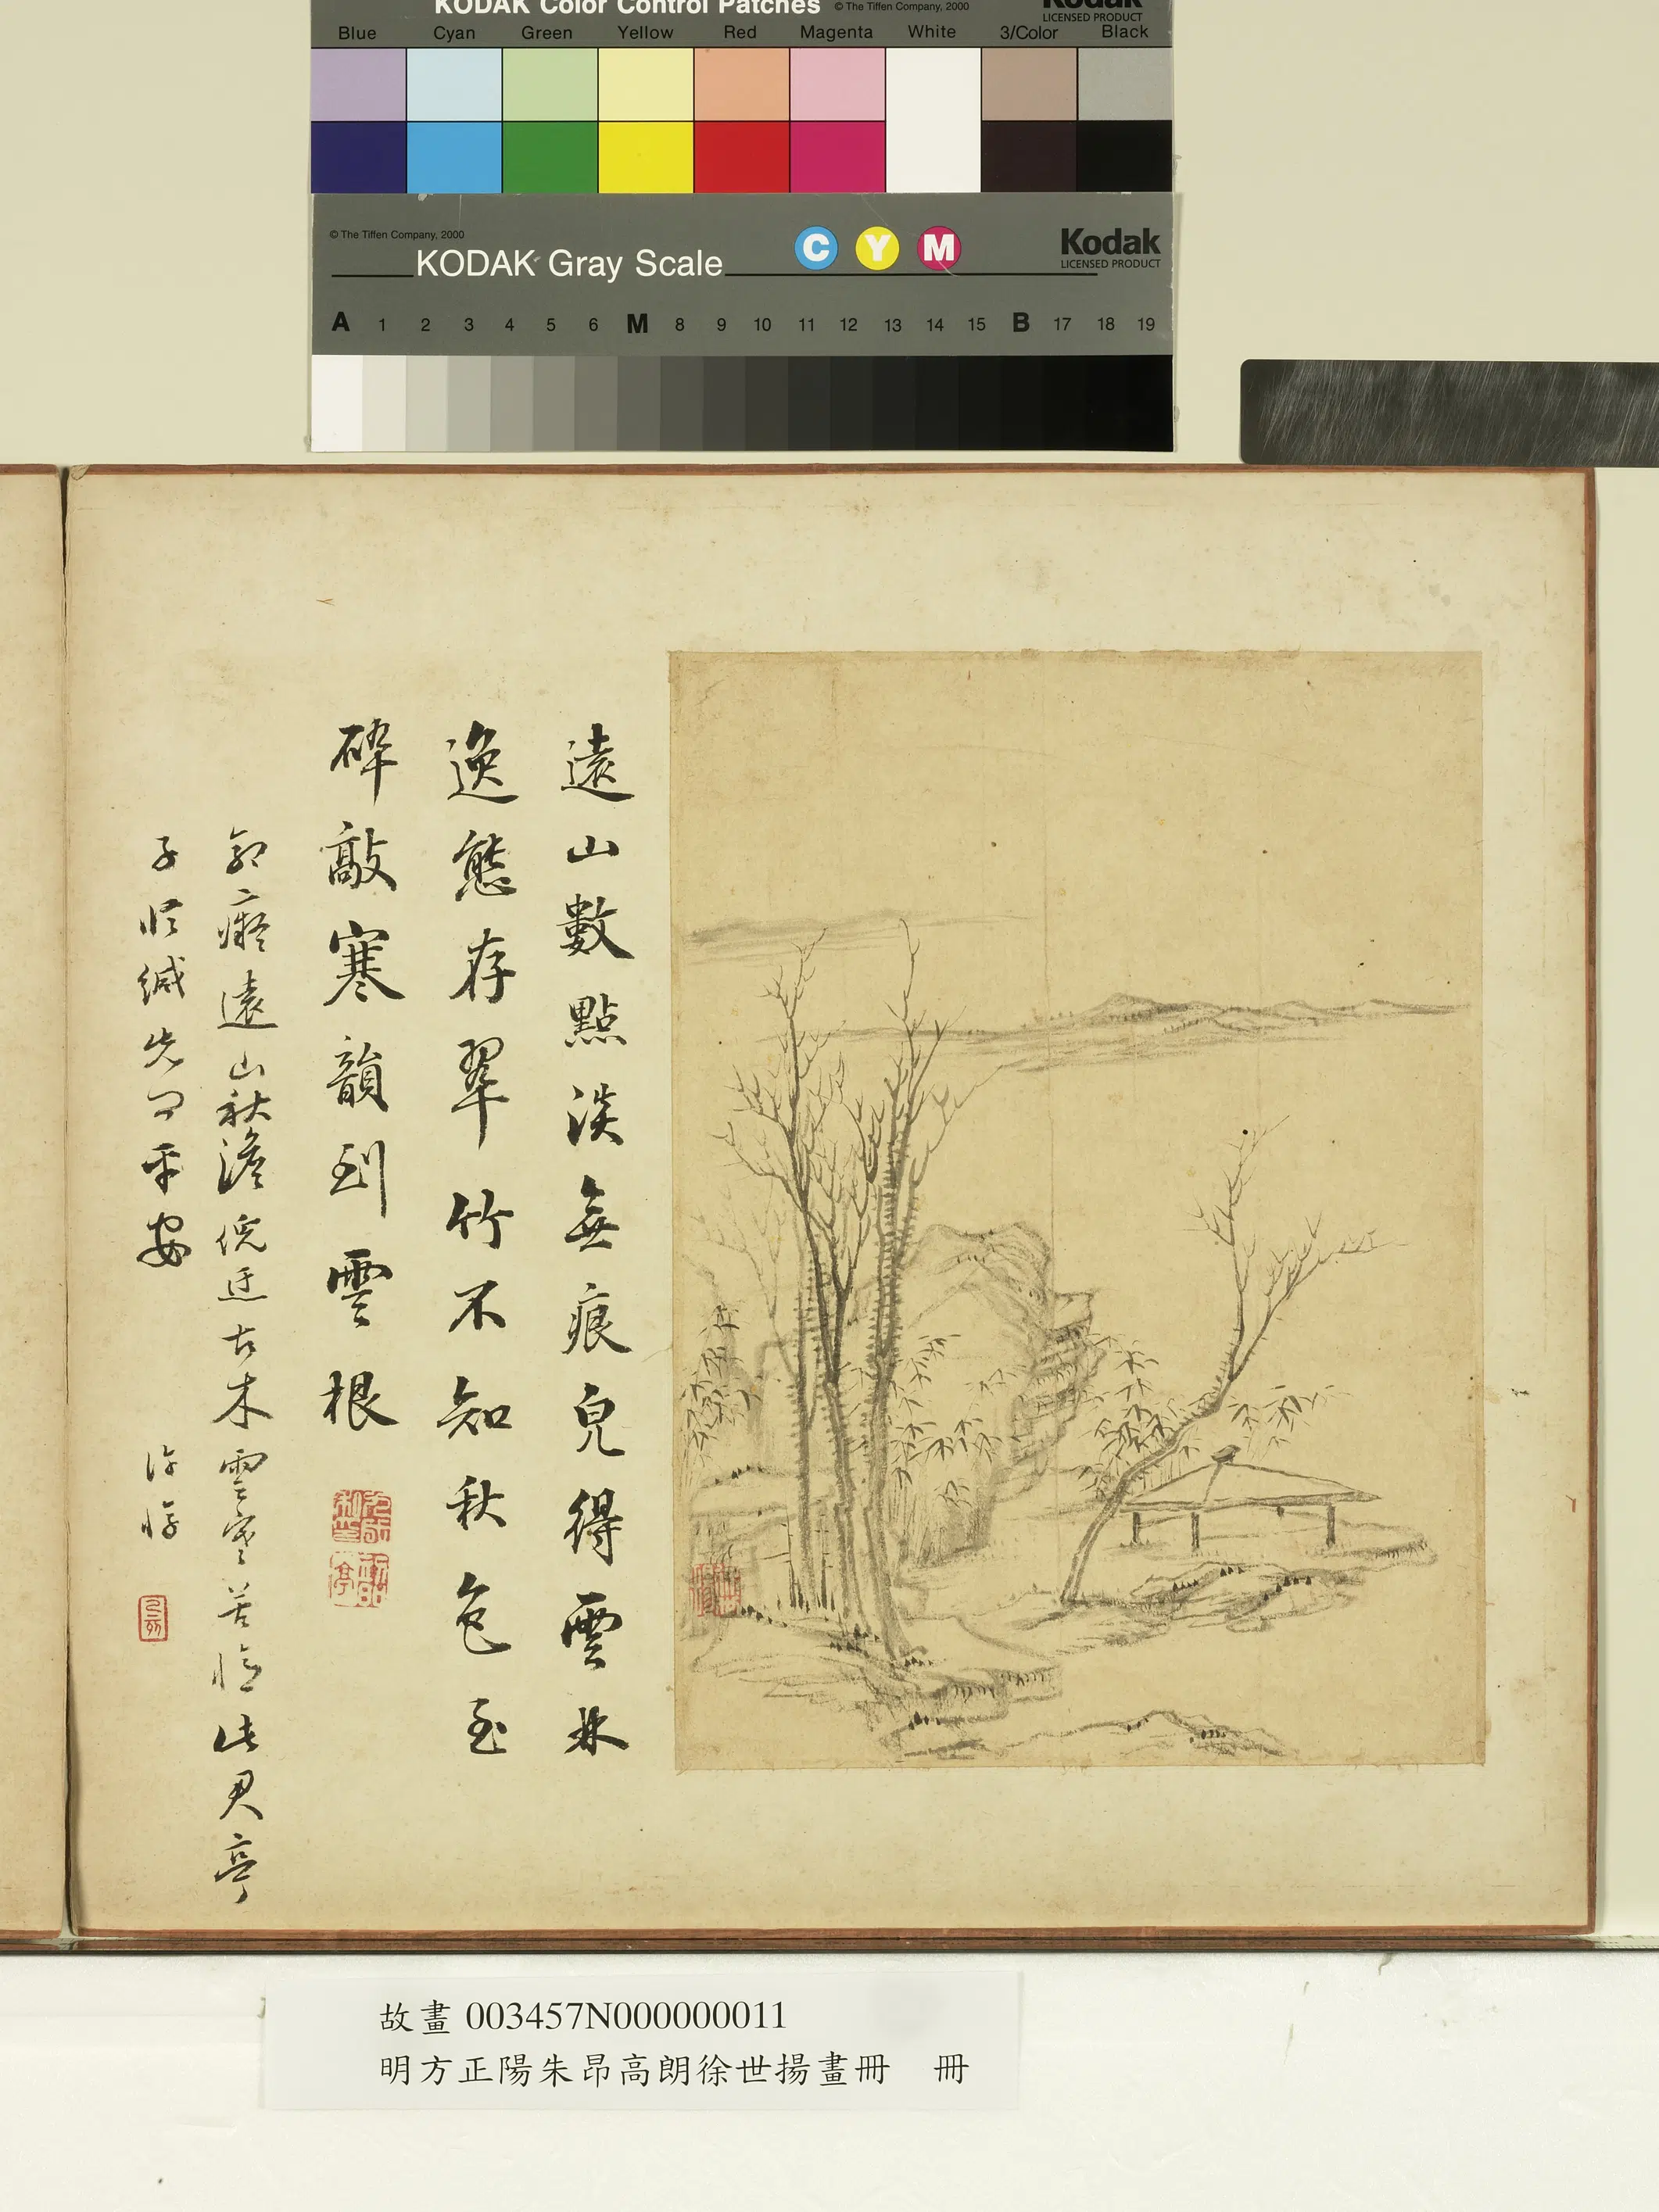 KODAK Color Control Patches © The Tiffen Company, 2000 Kodak
LICENSED PRODUCT
Blue Cyan Green Yellow Red Magenta White 3/Color Black
© The Tiffen Company, 2000
KODAK Gray Scale C Y M Kodak
LICENSED PRODUCT
A 1 2 3 4 5 6 M 8 9 10 11 12 13 14 15 B 17 18 19
遠山數點淡無痕皃得雲林
逸態存翠竹不知秋色至
碎敲寒韻到雲根
郭癡遠山秋澹倪迂古木雲寒苦憶此君亭
子 緘先 平安
故畫003457N000000011
明方正陽朱昂高朗徐世揚畫冊 冊